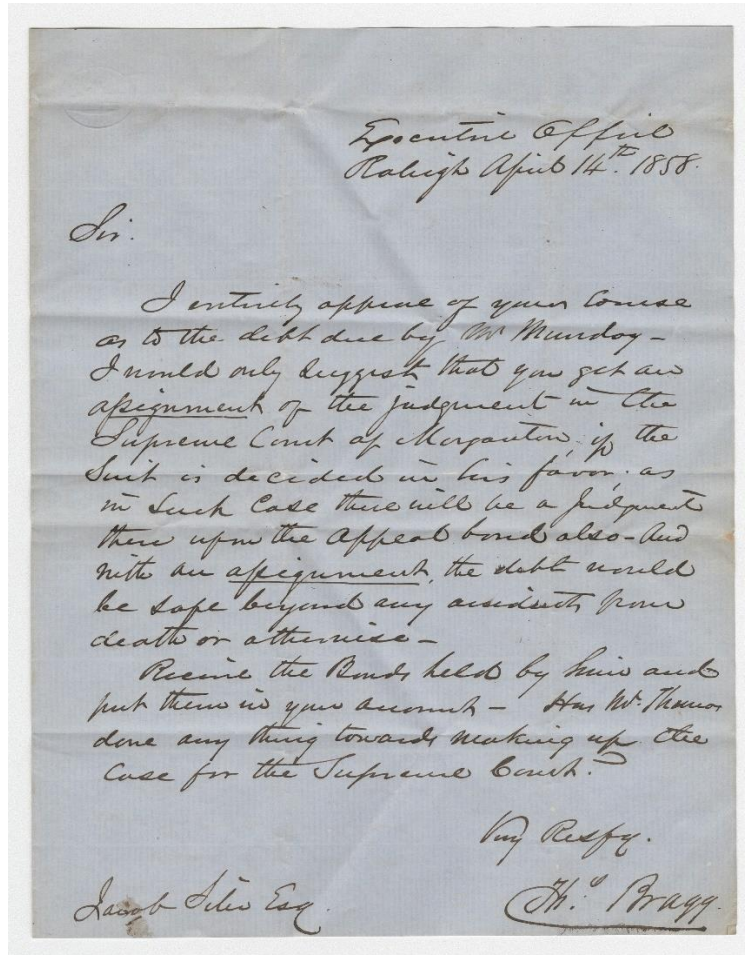 Executive Office
Raleigh April 14th. 1858.
Sir.
I entirely approve of your Course
as to the debt due by Mr Munday –
I would only suggest that you get an
assignment of the judgment in the
Supreme Court at Morganton, if the
Suit is decided in his favor, as
in such Case there will be a Judgment
there upon the Appeal bond also – And
with an assignment, the debt would
be safe beyond any accidents from
death or otherwise –
Receive the Bonds held by him and
put them in your account – Has Mr. Thomas
done any thing towards making up the
Case for the Supreme Court?
Very Respy.
Tho. Bragg.
Jacob Siler Esq.